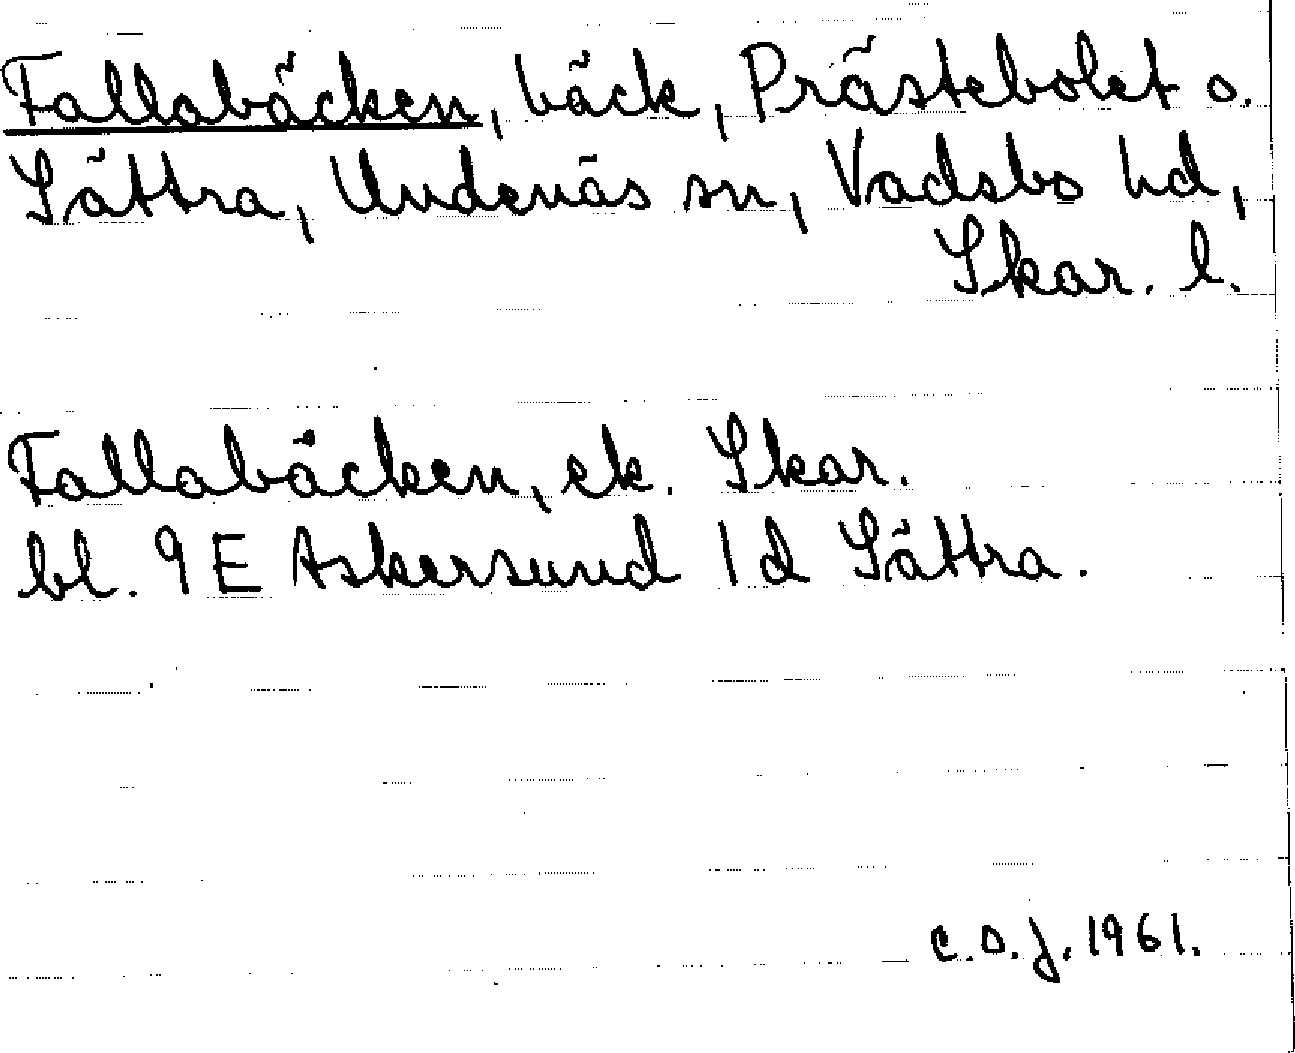 Fallabäcken, bäck, Prästebolet o.
Sättra, Undenäs sn, Vadsbo hd,
Skar. l.
Fallabäcken, ek. Skar.
bl. 9 E Askersund 1 d Sättra.
C.O.J. 1961.